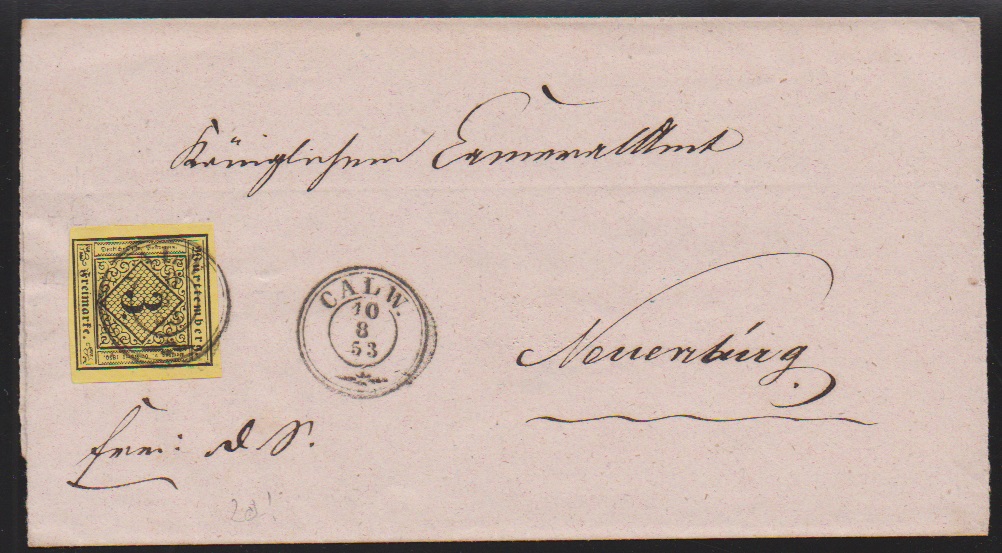 Königlichem Cameralamt
Württemberg
3.
Freimarke.
CALW.
10
8
53
Neuenbürg
d S.